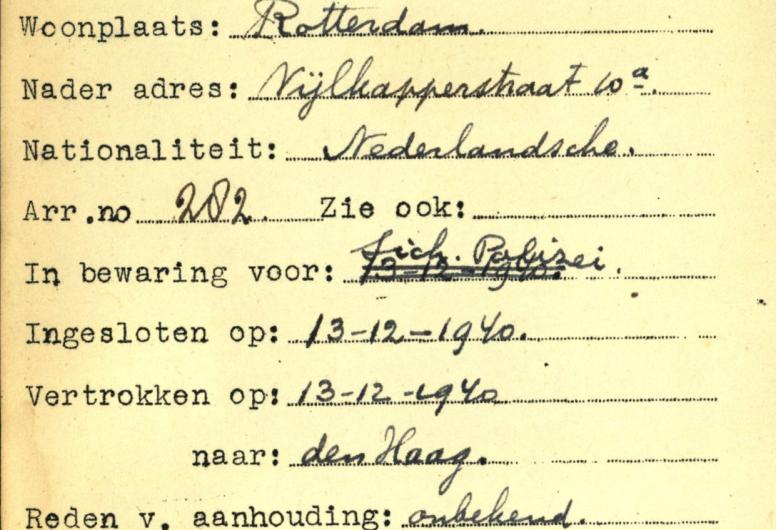 Woonplaats: Rotterdam.
Nader adres: Vijlkapperstraat 10a.
Nationaliteit: Nederlandsche.
Arr.no 282. Zie ook:
In bewaring voor: Sich. Polizei.
Ingesloten op: 13-12-1940.
Vertrokken op: 13-12-1940
naar: den Haag.
Reden v. aanhouding: onbekend.